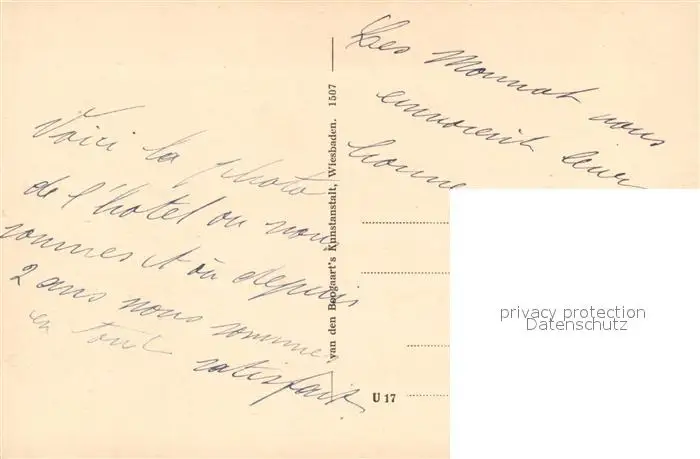 Voici la photo
de l'hotel ou nous
sommes et où depuis
2 ans nous sommes
en tout satisfait
van den Boogaart's Kunstanstalt, Wiesbaden. 1507
Les Monnat nous
envoient leur
bonne
U 17
privacy protection
Datenschutz